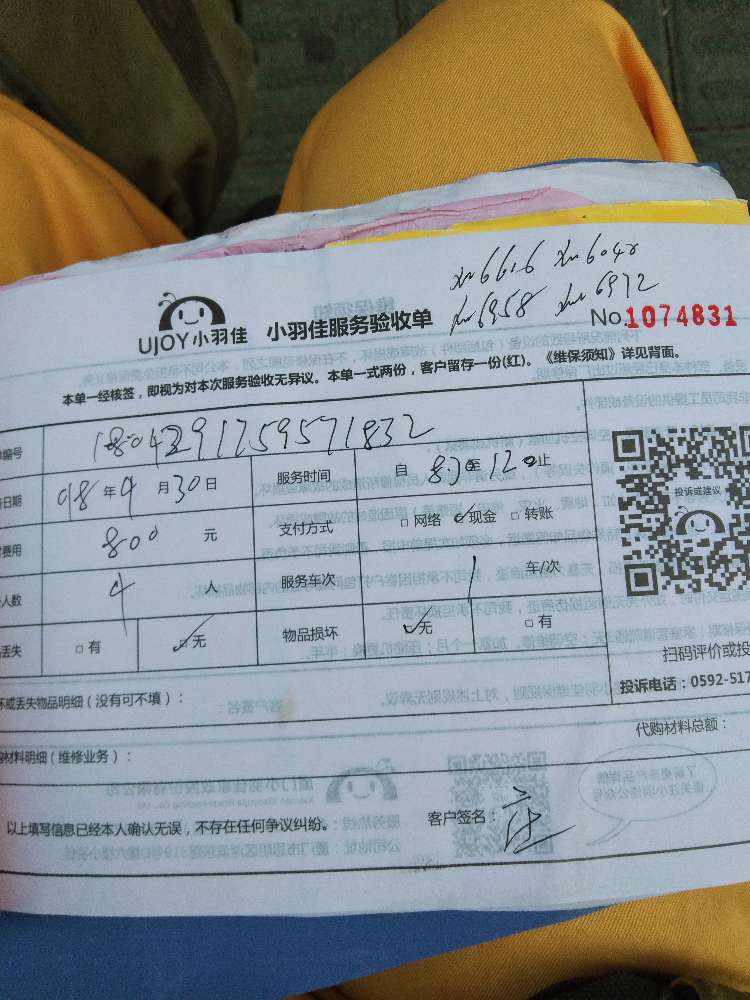 xm6616 xm6048
xm6958 xm6972
UJOY小羽佳 小羽佳服务验收单 No.1074831
本单一经核签，即视为对本次服务验收无异议。本单一式两份，客户留存一份(红)。《维保须知》详见背面。
编号 1804291759571832
日期 年 4 月 30 日 服务时间 自 至 12 止
费用 800 元 支付方式 □ 网络 ☑ 现金 □ 转账
人数 4 人 服务车次 1 车/次
丢失 □ 有 ☑ 无 物品损坏 ☑ 无 □ 有
投诉或建议
扫码评价或投
投诉电话：0592-517
坏或丢失物品明细（没有可不填）：
代购材料总额：
购材料明细（维修业务）：
以上填写信息已经本人确认无误，不存在任何争议纠纷。 客户签名：